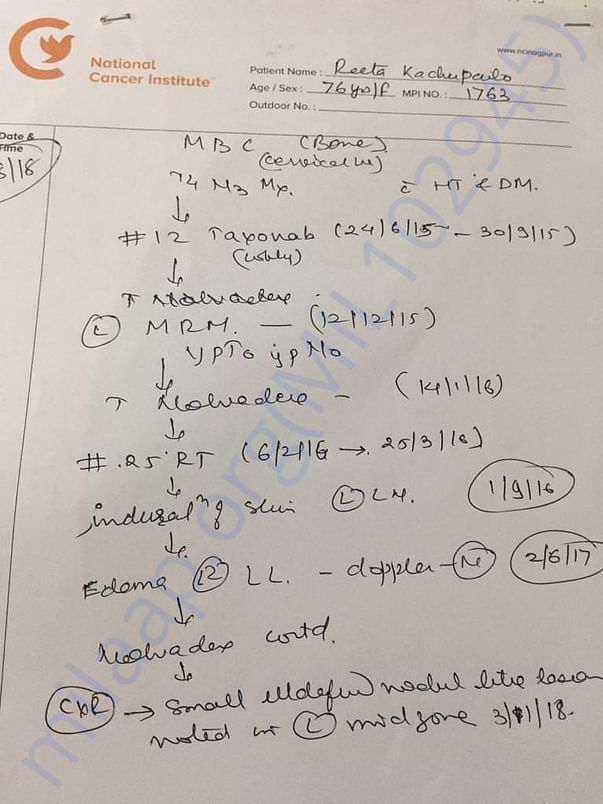 www.ncinagpur.in
National
Cancer Institute
Patient Name : Reeta
Age / Sex : 76 yrs/F MPI NO. : 1763
Outdoor No. :
Date &
Time
/18
MBC (Bone)
(cervical
T4 N3 Mx. c̄ HT & DM.
↓
#12 Taxonab (24/6/15 - 30/9/15)
(wkly)
↓
T Nolvadex
(L) MRM. — (12/12/15)
↓ ypT0 ypN0
T Nolvadex - (14/1/16)
↓
#.25 RT (6/2/16 → 25/3/16)
↓
indurat^n of skin (L) 1/9/16
↓
Edema LL. - doppler - 2/6/17
↓
Nolvadex contd.
↓
CXR → Small illdefined nodul like lesion
noted in (L) midzone /18.
milaap.org(MIL1029445)